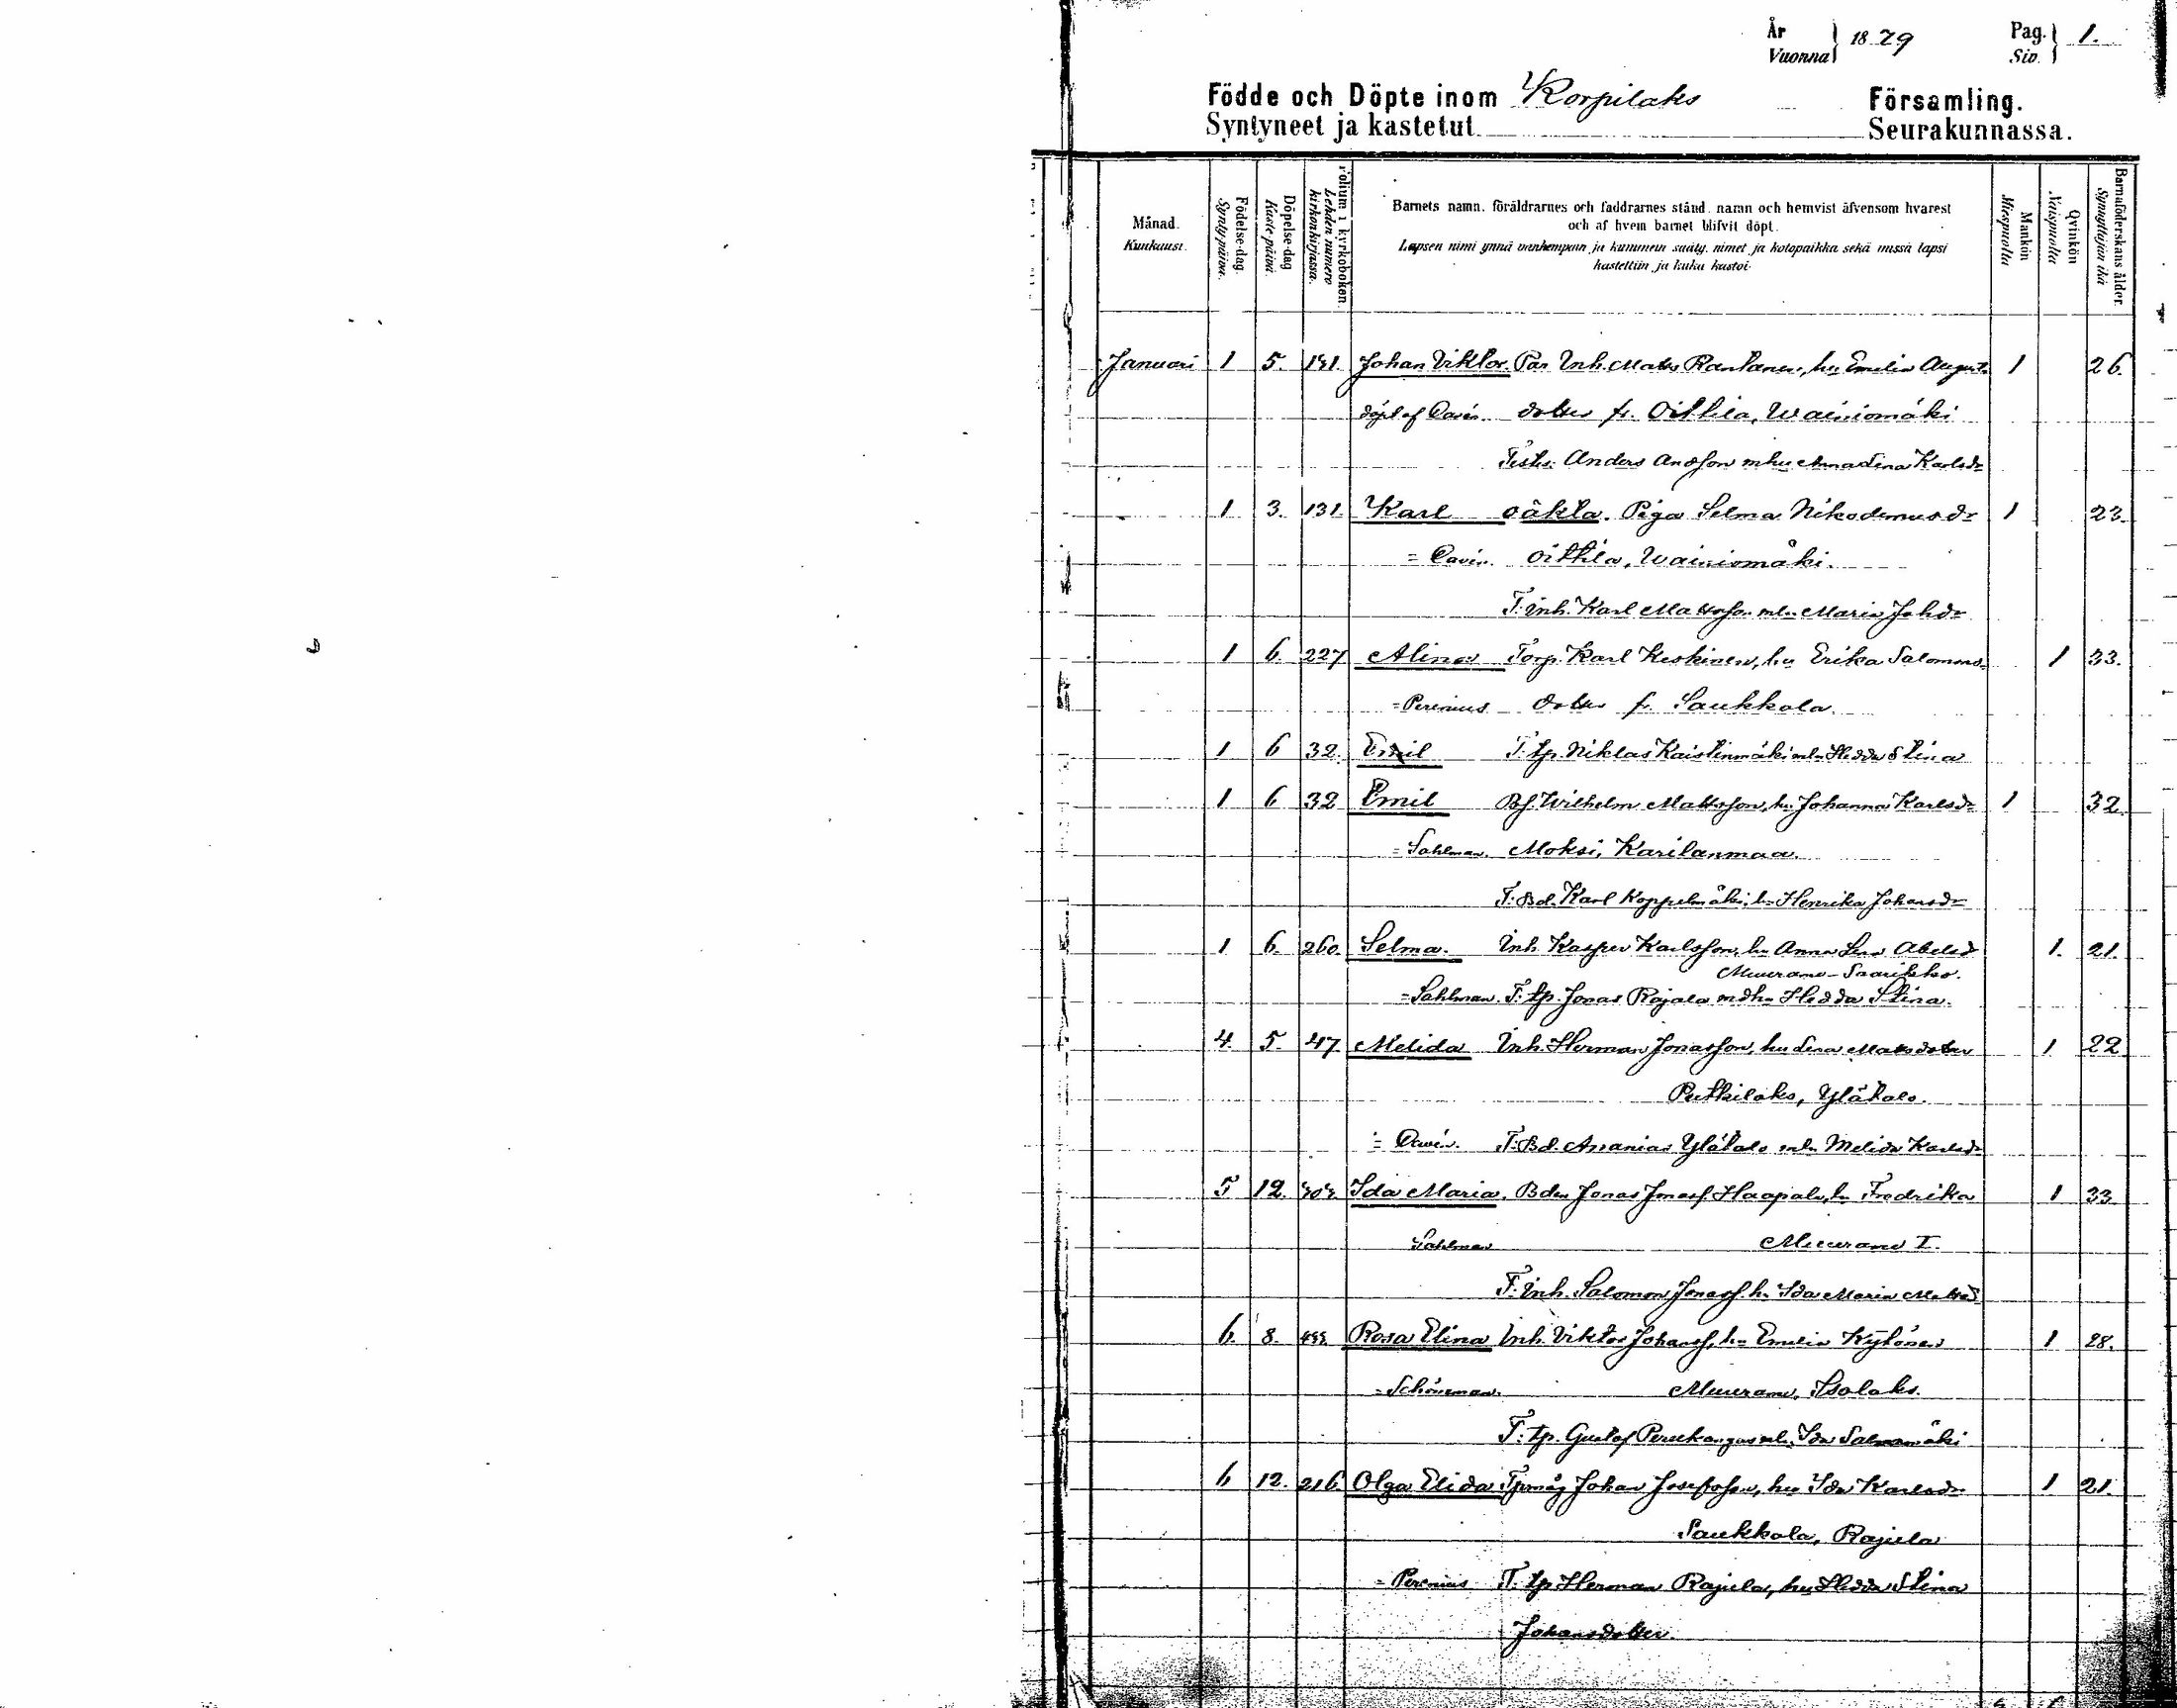 År
Vuonna } 1879 Pag.
Siv. } 1.
Födde och Döpte inom Korpilaks Församling.
Syntyneet ja kastetut Seurakunnassa.
Månad.
Kuukausi.
Födelse-dag.
Synty-päivä.
Döpelse-dag
Kaste-päivä.
Folium i kyrkoboken.
Lehden numero
kirkonkirjassa.
Barnets namn, föräldrarnes och faddrarnes stånd, namn och hemvist äfvensom hvarest
och af hvem barnet blifvit döpt.
Lapsen nimi ynnä vanhempain ja kummein sääty, nimet ja kotopaikka sekä missä lapsi
kastettiin ja kuka kastoi.
Mankön
Miespuolia
Qvinkön
Naispuolia
Barnaföderskans ålder.
Synnyttäjän ikä
Januari 1 5. 141. Johan Viktor. Par. Inh. Matts Rantanen, hu Emilia August- 1 26.
döpt af Cavén. dotter fr. Oittila, Wainiomäki
Testes: Anders Andsson m hu Anna Lina Karlsdr
1 3. 131. Karl oäkta. Piga Selma Nikodemusdr 1 23.
= Cavén. Oittila, Wainiomäki.
T: Inh. Karl Mattsson m hu Maria Johdr
1 6. 227 Alina Torp. Karl Keskinen, hu Erika Salomons- 1 33.
= Perenius dotter fr. Saukkola.
1 6 32. Emil T: tp. Niklas Kaistinmäki m hu Hedda Stina
1 6 32 Emil Bs. Wilhelm Mattsson, hu Johanna Karlsdr 1 32.
= Sahlman. Moksi, Karilanmaa.
T: Bd. Karl Koppelmäki, h= Henrika Johansdr
1 6. 260. Selma. Inh. Kasper Karlsson, hu Anna Lena Abelsd 1. 21.
Muurame - Saarikko.
= Sahlman. T: tp. Jonas Rajala m dhn Hedda Stina.
4. 5. 47. Melida Inh. Herman Jonasson, hu Lena Matsdotter 1 22
Putkilaks, Ylätalo.
= Cavén. T: Bd. Ananias Ylätalo m hu Melida Karlsdr
5 12. 404. Ida Maria. Bdn Jonas Jonass. Haapala, hu Fredrika 1 33.
Sahlman Muurame I.
T: Inh. Salomon Jonass. h= Ida Maria Matsd
6. 8. Rosa Elina Inh. Viktor Johanss, h= Emilia Kytönen 1 28.
= Schöneman. Muurame, Isolaks.
T: tp. Gustaf m hu Ida Salmenmäki
6 12. 216. Olga Elida Tpmåg Johan Josefsson, hu Ida Karlsdr 1 21.
Saukkola, Rajula
= Perenius T: tp. Herman Rajula, hu Hedda Stina
Johansdotter.